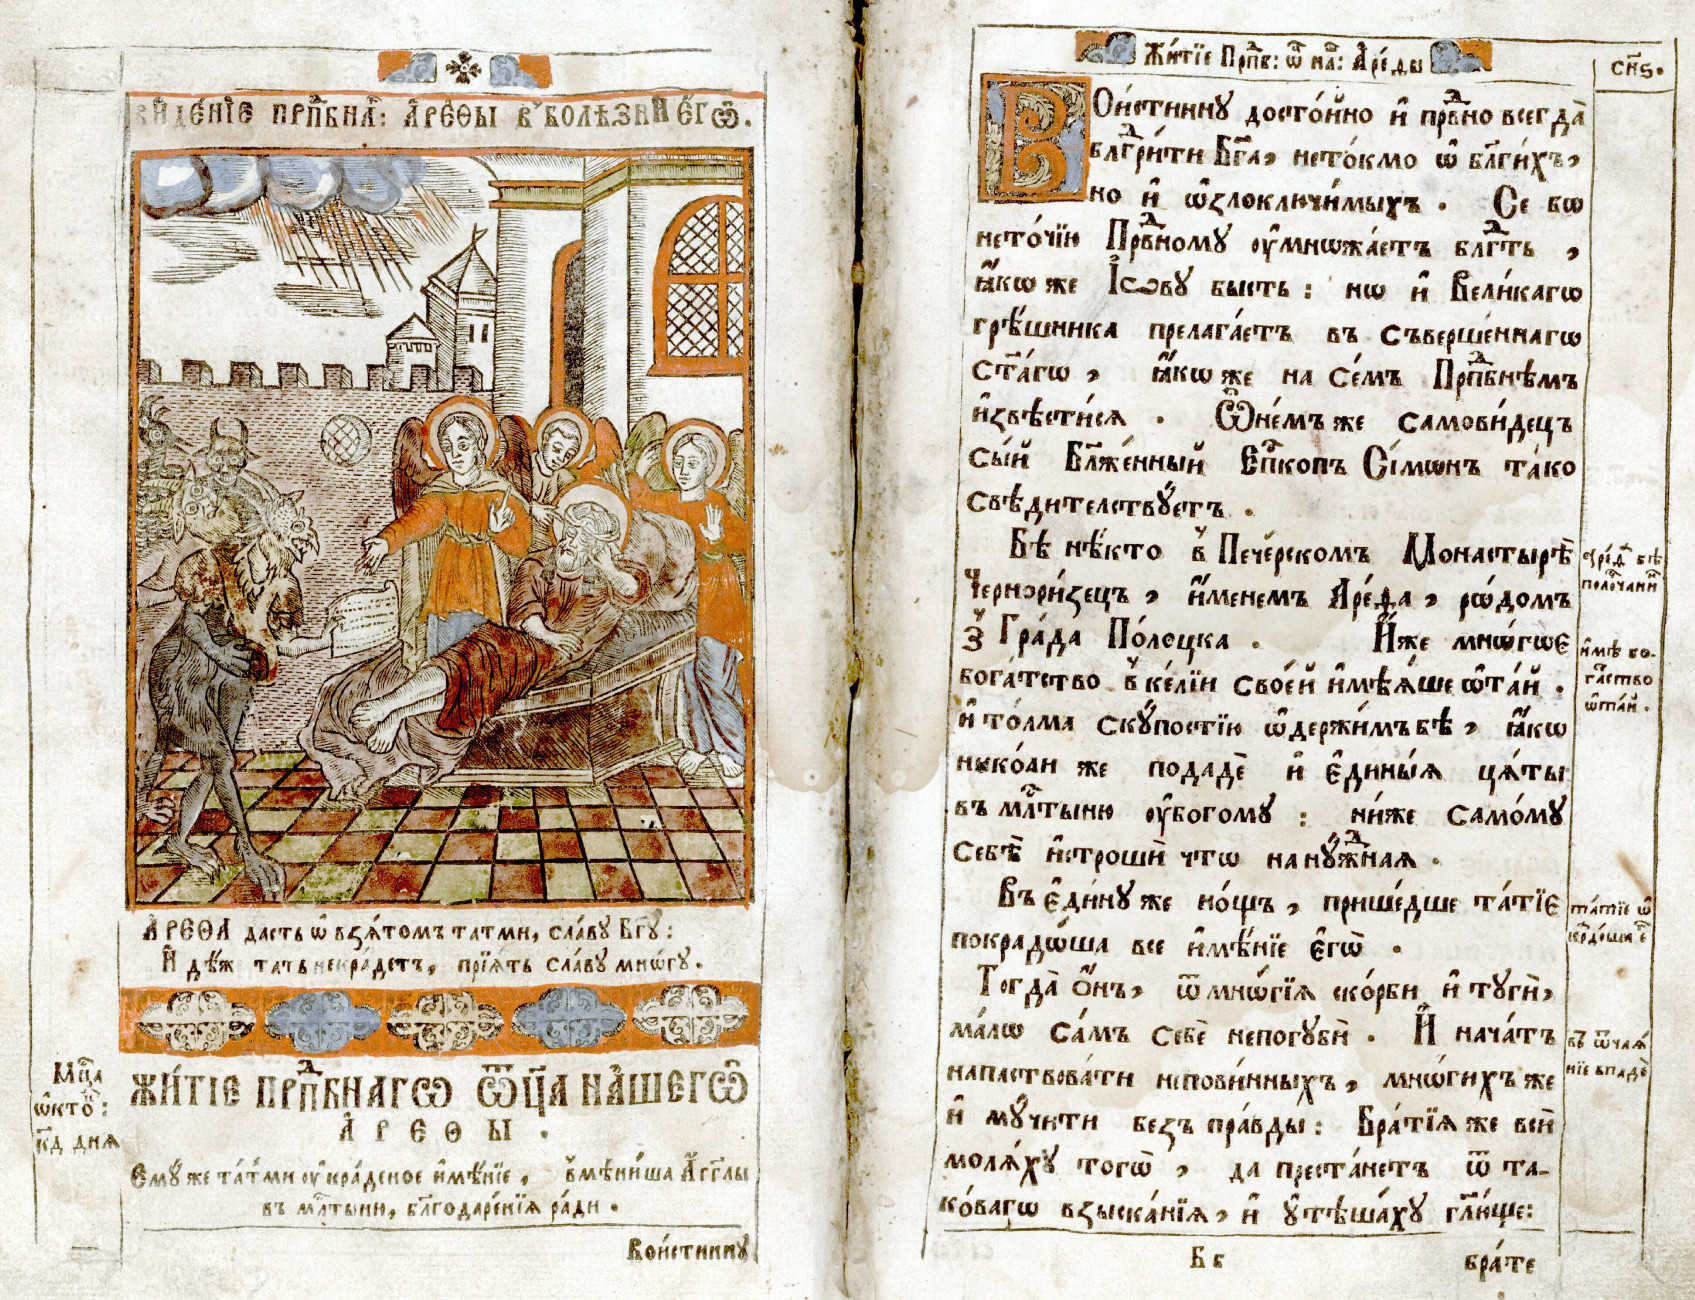 ВИДЕ́НІЕ ПРПⷣБНА: А҆РЕ́ѲЫ В̾ БОЛѢЗНИ Е҆ГѠ̀.
А҆РЕѲА дастъ ѡ҆ взѧ́томъ татми, сла́ву Бг҃у:
И҆ дѣ́ж тать некра́детъ, прїѧ́тъ славу мнѡ́гу.
Мц҃а
ѡ҆кто́в:
к҃д днѧ
ЖИ́ТІЕ ПРПⷣБНАГѠ Ѿц҃А НА́ШЕГѠ
А҆РЕѲЫ.
Е҆му́же та́тми ᲂу҆кра́деное и҆мѣ́нїе, в̾мѣни́ша А҆́гг҃лы
въ мл҃тыню, бл҃годаре́нїѧ ра́ди.
Вои́стинну
Жи́тїе Прпⷣб: ѿ на: А҆ре́ѳы
сн҃ѕ.
ВОи́стинну досто́йно и҆ првⷣно всегда̀
бл҃гⷣри́ти Бг҃а, нето́кмо ѡ҆ бл҃ги́хъ,
но и҆ ѡ҆ѕлоключи́мыхъ. Се бѡ
нето́чїю Првⷣному ᲂу҆мнѡжа́етъ блг҃ть,
ꙗ҆́коже І҆ѡву бысть: нѡ и҆ Вели́кагѡ
грѣ́шника прелага́етъ въ съверше́ннагѡ
ст҃а́гѡ, ꙗ҆́коже на се́мъ Прпⷣбнѣмъ
и҆звѣсти́сѧ. Ѽ не́мъже самови́децъ
сы́й Бл҃же́нный Е҆пⷭ҇копъ Сі́мѡнъ та́ко
свѣ́дителствꙋетъ.
Бѣ́ нѣ́кто в̾ Пече́рскомъ Монастырѣ̀
Черноризецъ, и҆́менемъ А҆ре́ѳа, рѡ́домъ
з̾ Гра́да По́лоцка. И҆́же мнѡ́гѡе
бога́тство в̾ ке́лїи свое́й и҆мѣѧ́ше ѡ҆та́й.
и҆ то́лма скꙋ́постїю ѡ҆держи́мъ бѣ̀, ꙗ҆́кѡ
нико́ли же подадѐ и҆ є҆ди́ныѧ цѧ́ты
въ мл҃тыню ᲂу҆бо́гому: ни́же само́му
себѣ̀ и҆строшѝ чтѡ на нꙋ́жⷣнаѧ.
Въ є҆ди́нꙋ же но́щь, прише́дше та́тїе
покрадѡ́ша все и҆мѣ́нїе є҆гѡ̀.
Тогда̀ ѻ҆́нъ, ѿ мнѡ́гїѧ ско́рби и҆ тꙋги̇̀,
ма́лѡ са́мъ себѐ непогꙋбѝ. И҆ нача́тъ
напаствова́ти непови́нныхъ, мнѡ́гихъ же
и҆ мꙋ́чити безъ пра́вды: Бра́тїѧ же всѝ
молѧ́хꙋ тогѡ̀, да преста́нетъ ѿ та-
ко́вагѡ взыска́нїѧ, и҆ ᲂу҆тѣша́хꙋ гл҃ю́ще:
Бб
бра́те
А҆ре́ѳ: бѣ̀
полоча́нин
и҆мѣ̀ бо-
га́ство
ѡ҆та́й.
та́тїе ѡ҆
въ ѿчаѧ́
нїе впадѐ